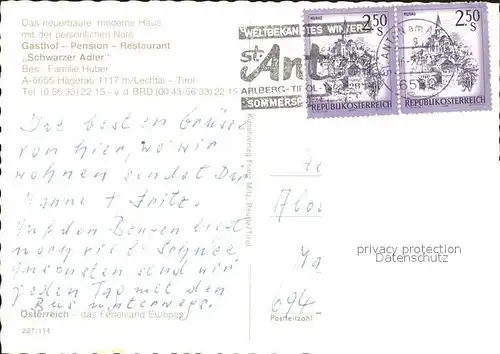 Das neuerbaute, moderne Haus
mit der persönlichen Note
Gasthof - Pension - Restaurant
"Schwarzer Adler"
Bes. Familie Huber
A-6655 Hägerau 1117 m/Lechtal - Tirol
Tel (0 56 33) 22 15 - v. d. BRD (00 43/56 33) 22 15
WELTBEKANNTES WINTER
St. Ant
ARLBERG-TIROL-
SOMMERSP
MURAU
2.50
S
REPUBLIK ÖSTERREICH
MURAU
2.50
S
REPUBLIK ÖSTERREICH
Die besten Grüsse
von hier, wo wir
wohnen sendet Dir
Hanne + Fritz.
Auf den Bergen liegt
noch viel Schnee
Ansonsten sind wir
jeden Tag mit dem
Bus unterwegs.
Österreich - das Ferienland Europas
227/114
694
Postleitzahl
privacy protection
Datenschutz